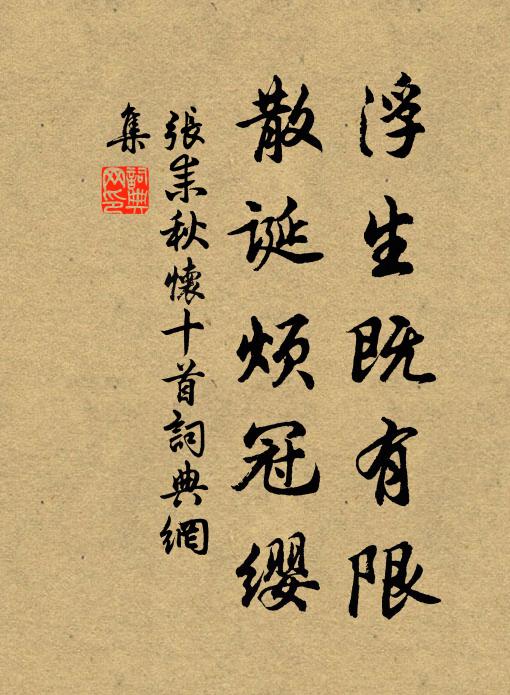 浮生既有限
散誕煩冠纓
張耒秋懷十首詞典網
集
詞典
网印